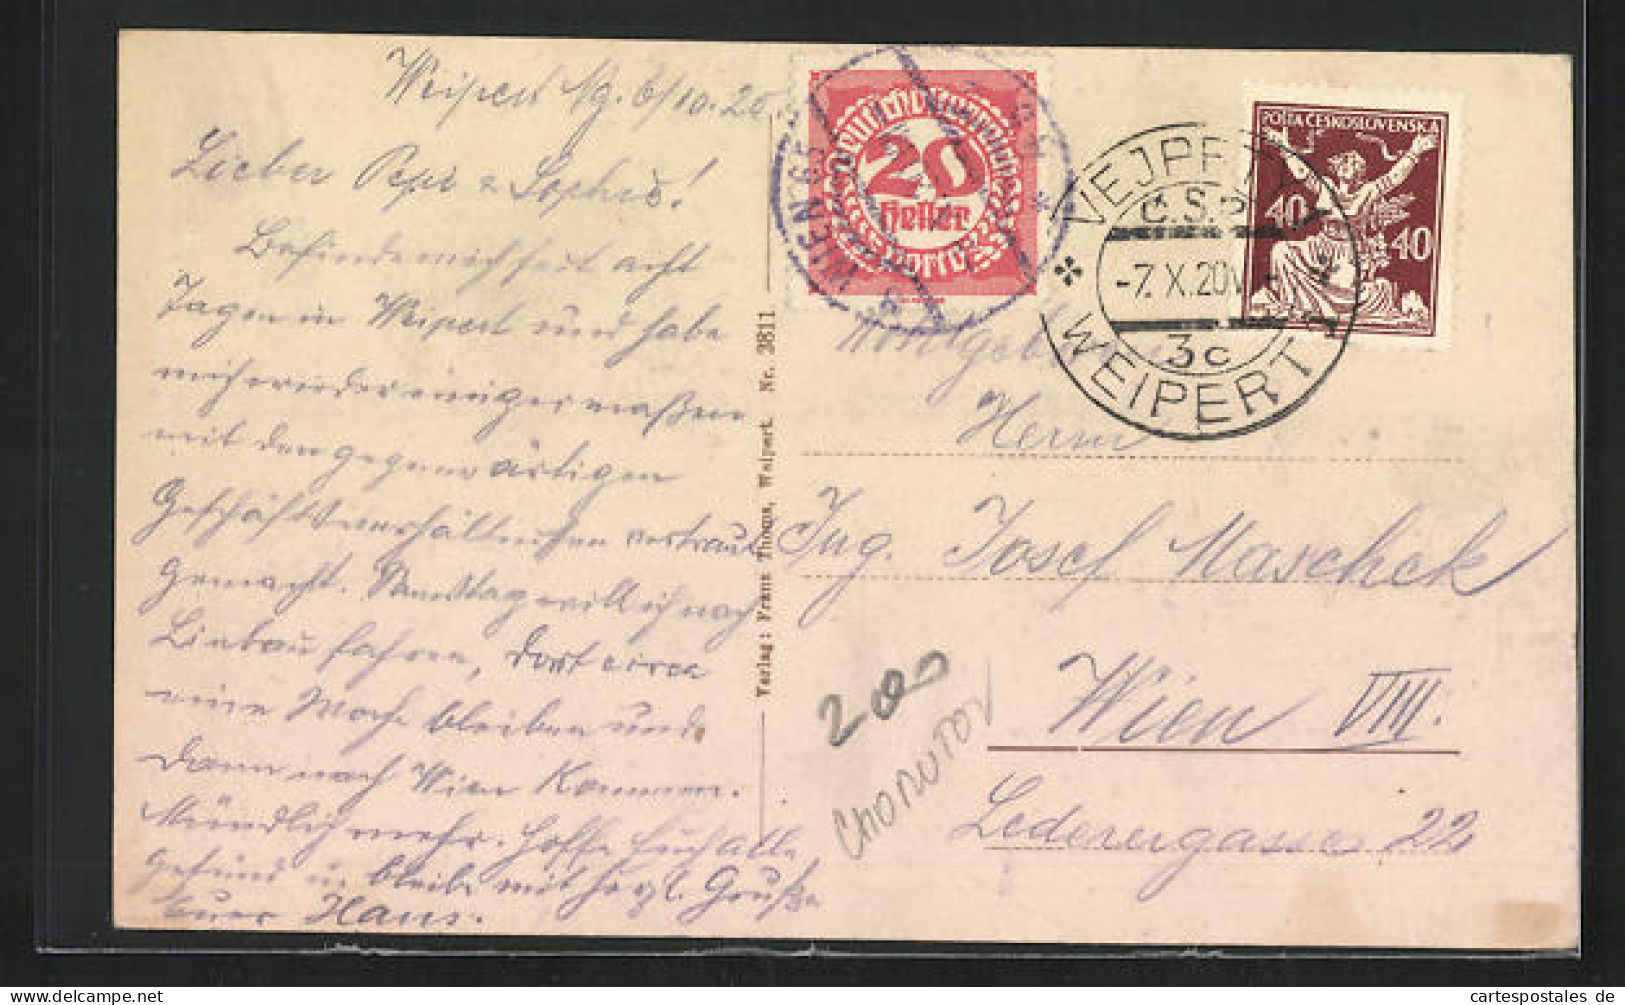 Weipert 6/10. 20.
Lieber Pepi & Sophie!
Befinde mich seit acht
Tagen in Weipert und habe
mich wieder einigermaßen
mit den gegenwärtigen
Geschäftsverhältnissen vertraut
gemacht. Samstag will ich nach
fahren, dort circa
eine Woche bleiben und
dann nach Wien kommen.
Mündlich mehr. Hoffe Euch alle
gesund u. bleibe mit herzl. Grüße
Euer Hans.
Verlag: Franz Thoma, Weipert. Nr. 3811
20
Heller
Porto
WIEN 65
POŠTA ČESKOSLOVENSKÁ
40 40
VEJPRTY
Č.S.P.
-7.X.20
3c
WEIPERT
Herrn
Ing. Josef Maschek
Wien VIII.
Lederergasse 22
200
CHOMUTOV
cartespostales de